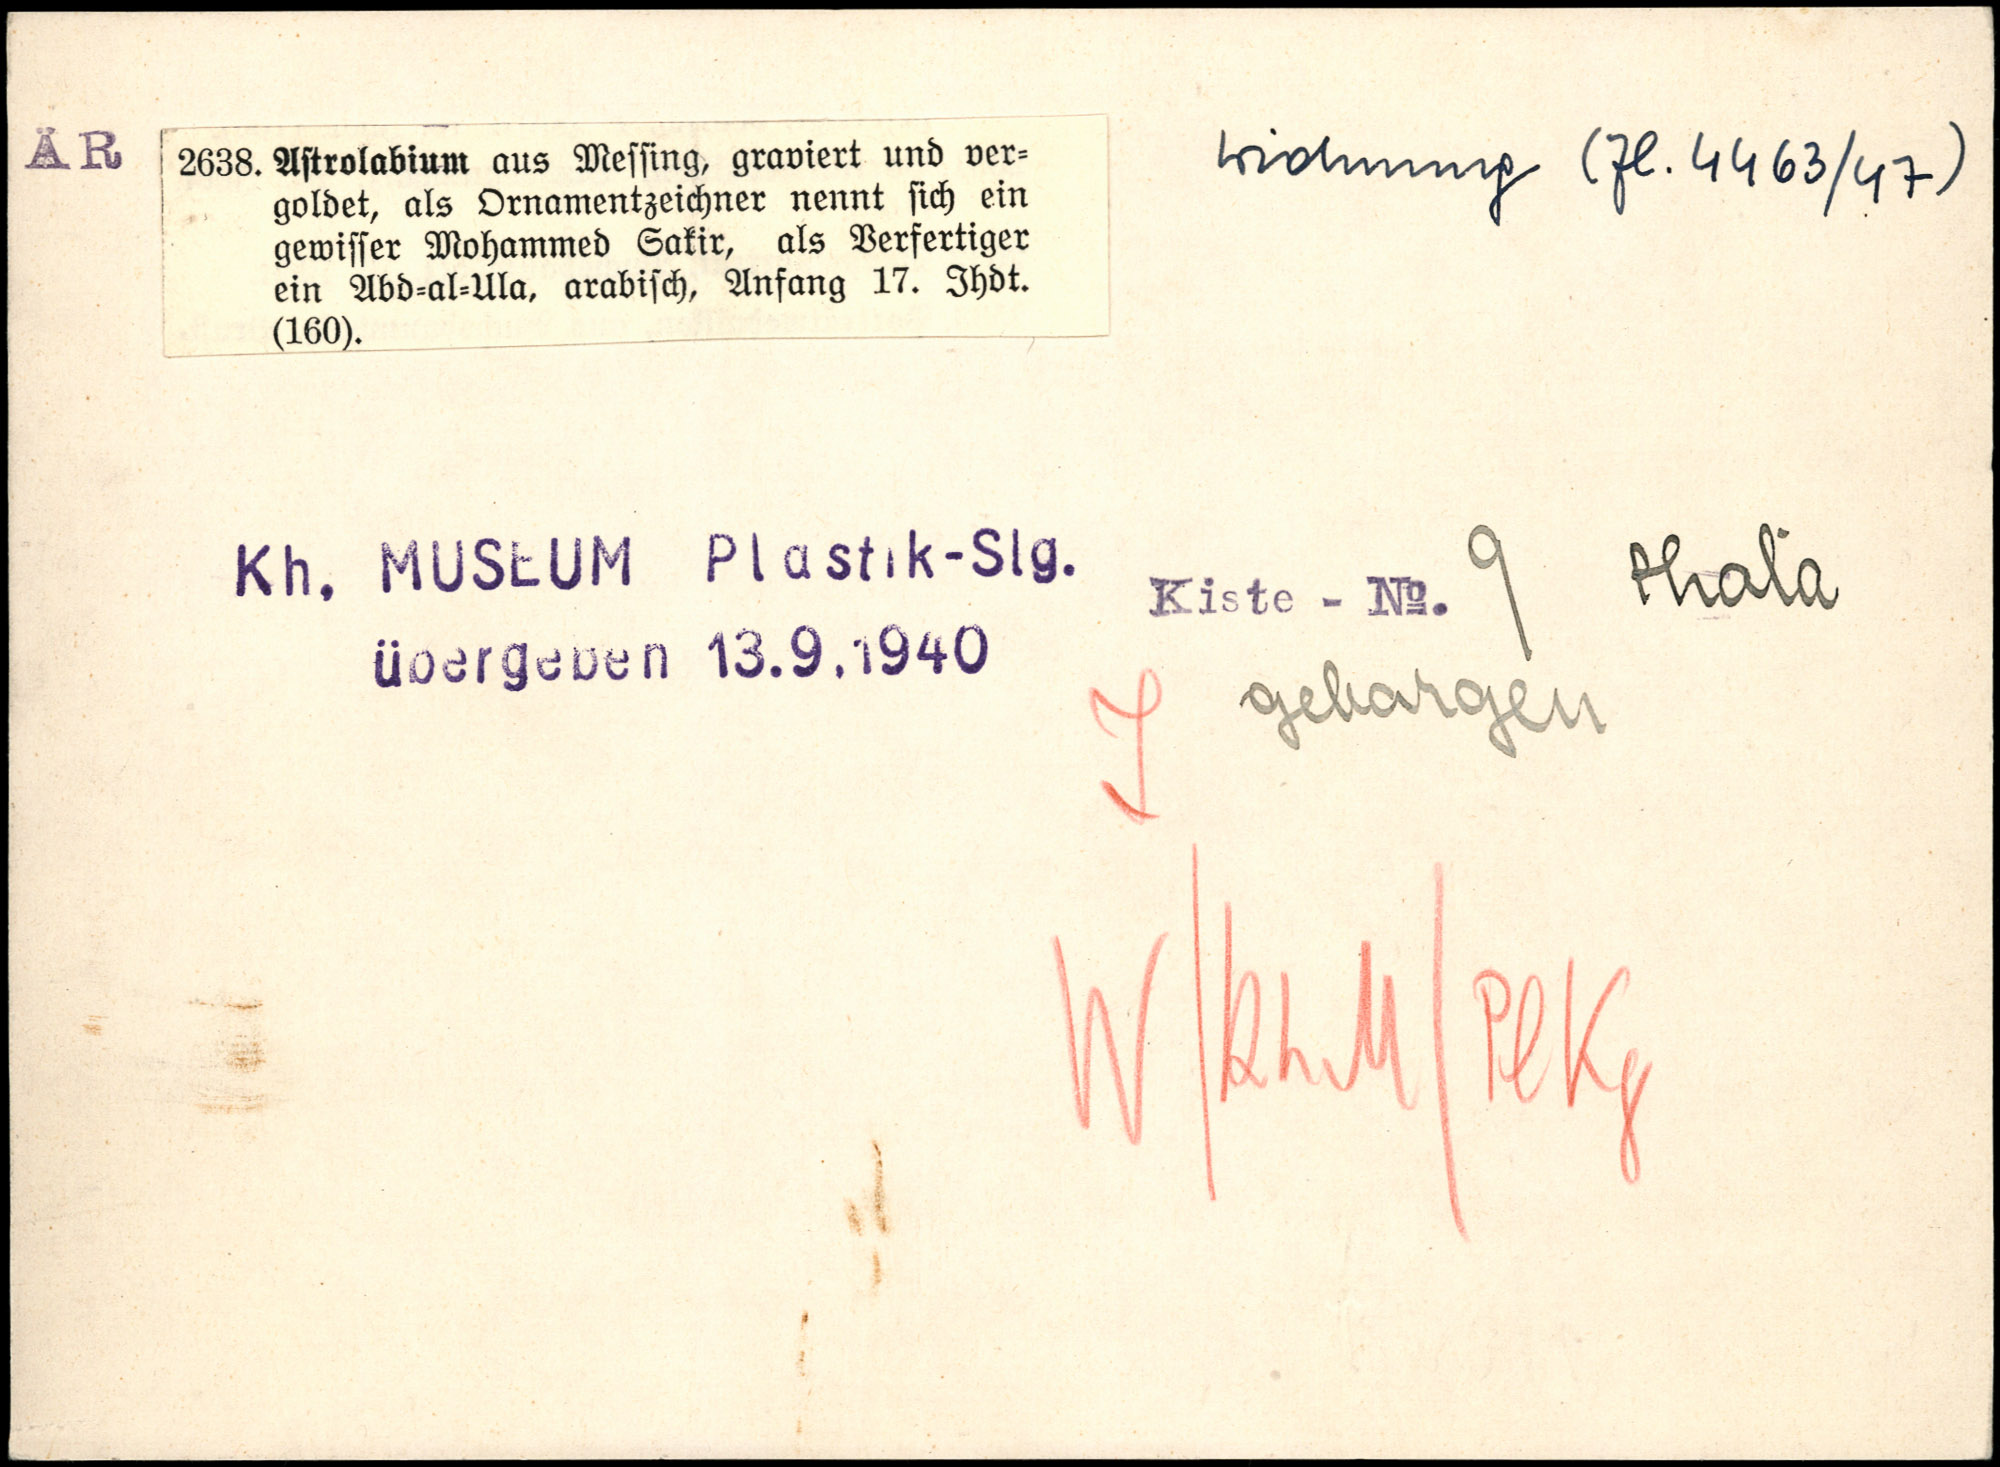 ÄR
2638. Astrolabium aus Messing, graviert und ver-
goldet, als Ornamentzeichner nennt sich ein
gewisser Mohammed Sakir, als Verfertiger
ein Abd-al-Ula, arabisch, Anfang 17. Jhdt.
(160).
Widmung (Zl. 4463/47)
Kh. MUSEUM Plastik-Slg.
übergeben 13.9.1940
Kiste - No. 9 thala
geborgen
J
W/KhM/PlKg